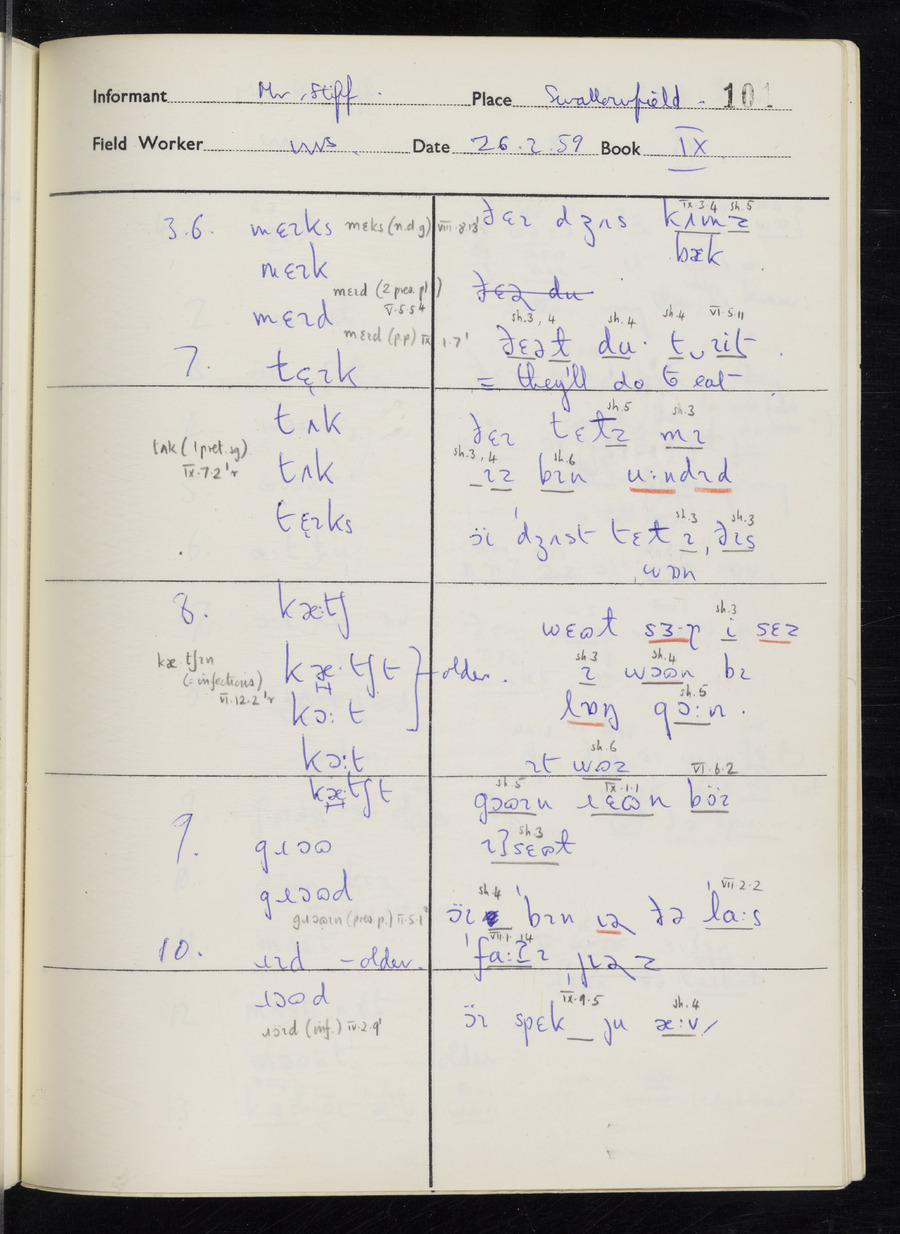 Informant Mr. Stiff. Place Swallowfield - 101
Field Worker WWS. Date 26.2.59 Book IX
3.6. mɛɪks mɛks (n.d g) VIII.8.13'
mɛɪk
mɛɪd (2 pres. p.)
V.5.5
mɛɪd
mɛɪd (p.p) IX 1.7'
7. tɛ̨ɪk
tʌk
tʌk (1 pret. sg)
IX.7.2'r
tʌk
tɛ̨ɪks
8. kæ:tʃ
kæ tʃɪn
(= infections)
VI.12.2'r
kæ·tʃt
kɔ: t
older.
kɔ:t
kæ·tʃt
9. gɹɔɷ
gɹɔɷd
gɹɔɷɪn (pres. p.) II.5.1'
10. ɹɪd - older.
ɹɔɷd
ɹöɪd (inf.) IV.2.9'
IX.3.4 sh.5
ðɛɪ dʒʌs kʌmz
bæk
ðɛə du
sh.3, 4 sh.4 sh.4 VI.5.11
ðɛət du· t‿ɪit
= they'll do to eat
sh.5 sh.3
ðɛɪ tɛtz mɪ
sh.3, 4 sh.6
ɪz bɪn u:ndɪd
sh.3 sh.3
öɪ 'dʒʌst tɛt ɪ, ðɪs
wɒn
sh.3
wɛɷt sɜ·ɪ i sɛz
sh.3 sh.4
ɪ wɔɷn bɪ
sh.5
lɒŋ gɔ:n.
sh.6
ɪt wɒz
sh.5 IX.1.1 VI.6.2
gɔɷɪn ɹɛɷn böɪ
sh.3
ɪʒsɛɷt
sh.4 VII.2.2
öɪ 'bɪn ɪə ðə 'la:s
VII.1.14
'fa:ʔɪ ˌjɪəz
IX.9.5 sh.4
öɪ spɛk ju æ:v/